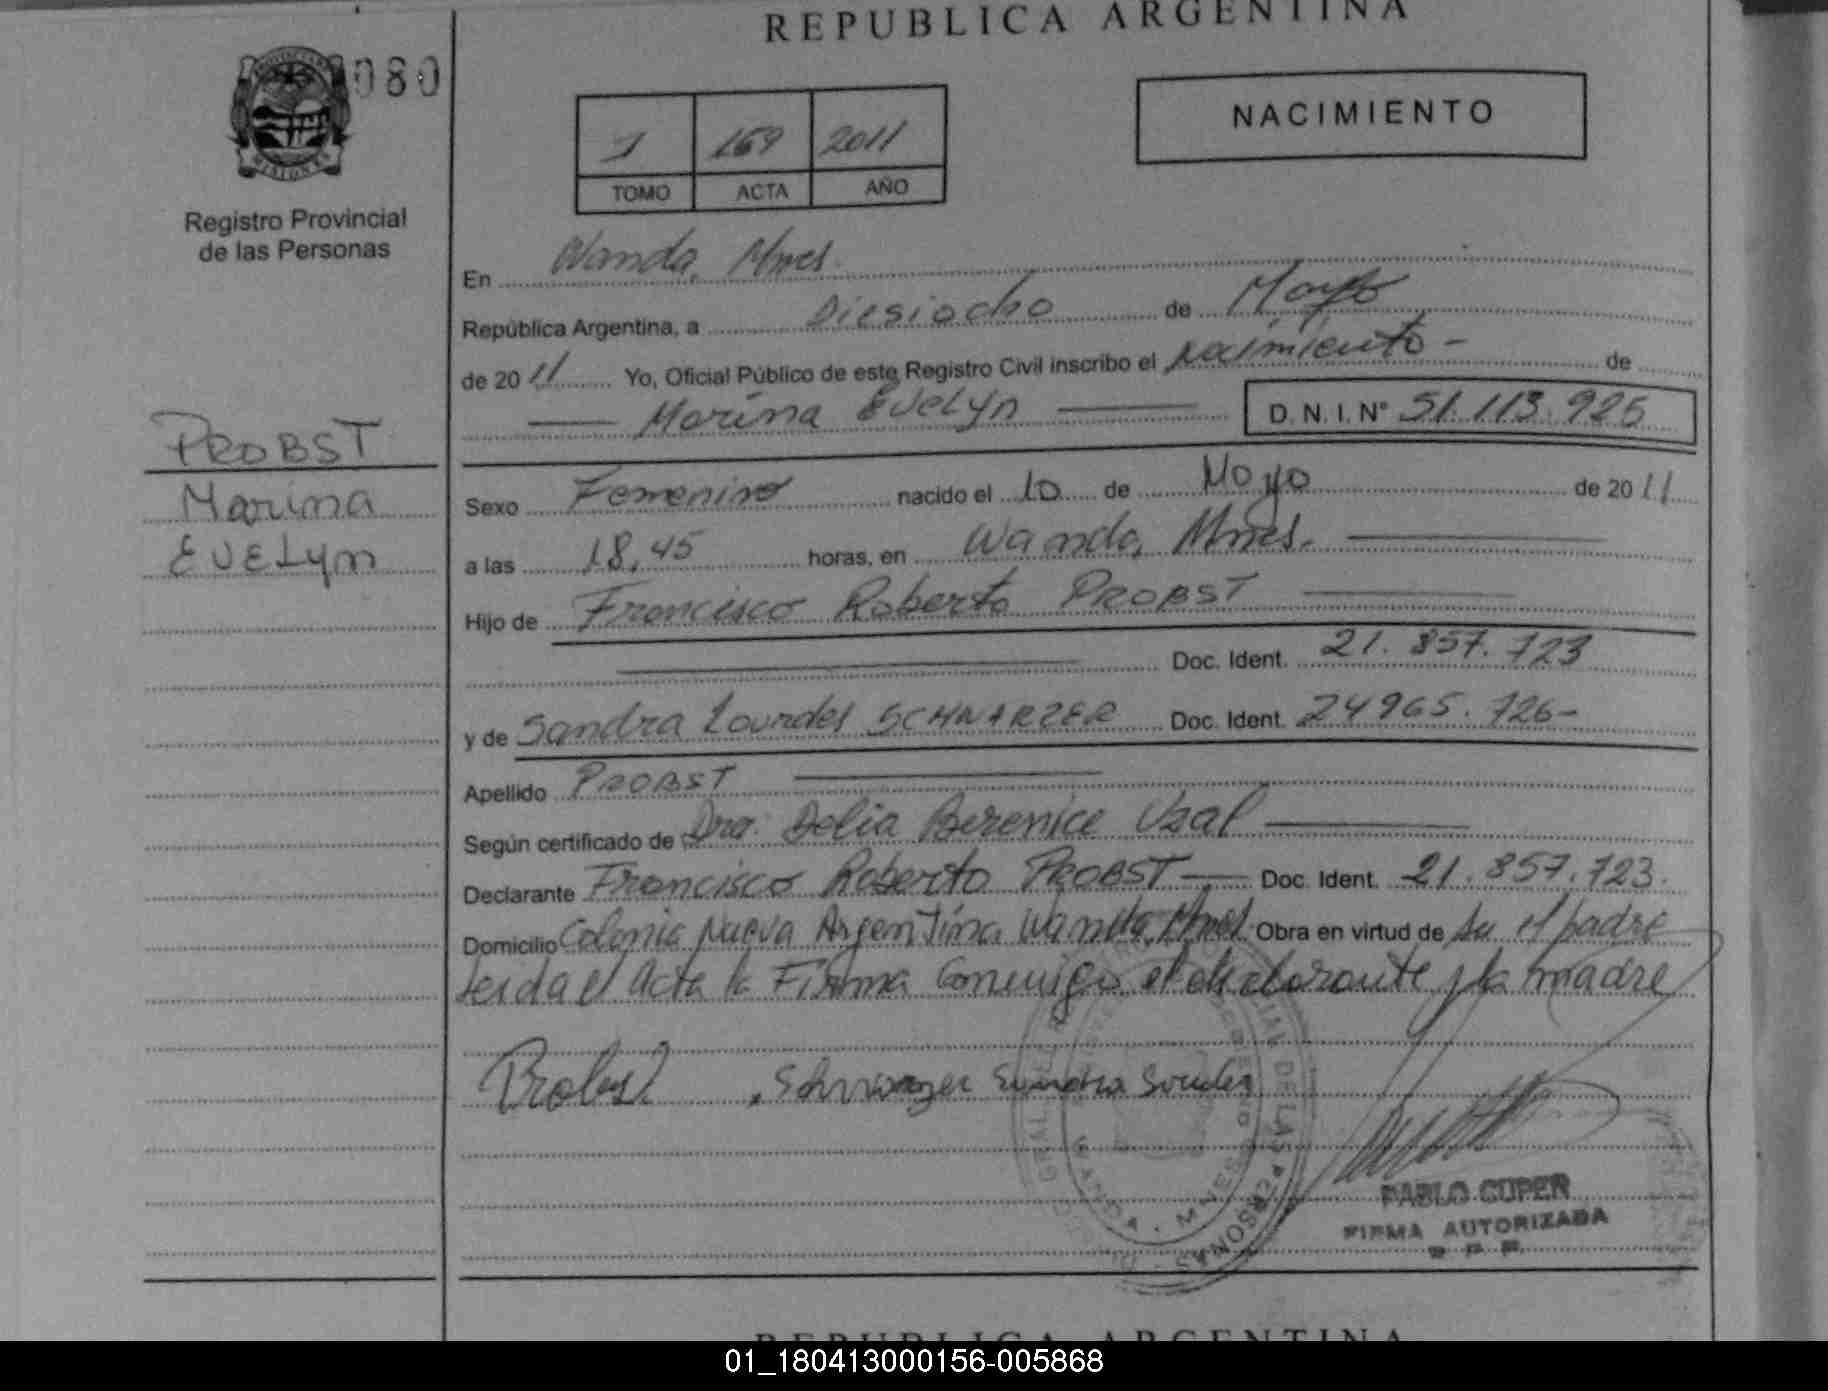 REPUBLICA ARGENTINA
080
NACIMIENTO
1 169 2011
TOMO ACTA AÑO
Registro Provincial
de las Personas
En Wanda, Mnes.
República Argentina, a Diesiocho de Mayo
de 2011 Yo, Oficial Público de este Registro Civil inscribo el Nacimiento - de
Marina Evelyn D.N.I. N° 51.113.925
PROBST
Marina
EVELyn
Sexo Femenino nacido el 10 de Mayo de 2011
a las 18,45 horas, en Wanda, Mnes.
Hijo de Francisco Roberto PROBST
Doc. Ident. 21.857.723
y de Sandra Lourdes SCHWARZER Doc. Ident. 24965.726-
Apellido PROBST
Según certificado de Dra. Delia Berenice Uzal
Declarante Francisco Roberto PROBST Doc. Ident. 21.857.723.
Domicilio Colonia Nueva Argentina Wanda, Mnes. Obra en virtud de Su el padre
Leida el Acta la Firma Conmigo el declarante y la madre
Probst Schwarzer Sandra
DE LAS PERSONAS
WANDA - MNES
PABLO CUPER
FIRMA AUTORIZADA
R P P
REPUBLICA ARGENTINA
01_180413000156-005868